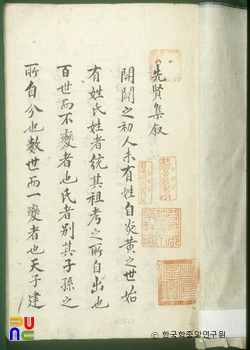 先賢集叙
開闢之初人未有姓自炎黄之世始
有姓氏姓者統其祖考之所自出也
百世而不變者也氏者別其子孫之
所自分也數世而一變者也天子建
PUNC
© 한국학중앙연구원